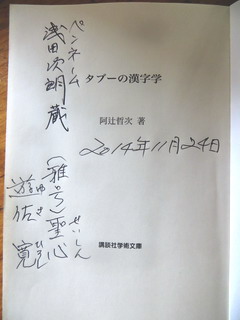 タブーの漢字学
阿辻哲次 著
講談社学術文庫
2014年11月24日
ペンネーム
浅田次朗 蔵
(雅号)聖心
せいしん
遊佐 寛
ゆさ ひろし